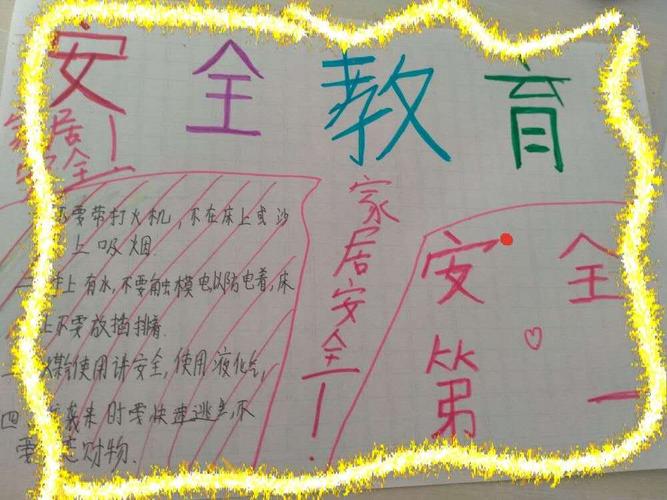 安全教育
家居
安全!
不要带打火机,不在床上或沙
上吸烟.
上有水,不要触摸电以防电着,床
上不要放插排.
使用讲安全,使用液化气,
四 袭来时要快速逃生,不
要 财物.
家居安全!
安全
第一